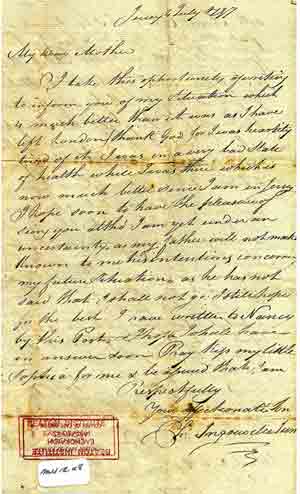 Jersey 4 July
My dear Mother
I take this opportunity of writing
to inform you of my Situation which
is much better than it was as I have
left London (thank God for I was heartily
tired of it I was in a very bad State
of health while I was there which is
now much better since I am in Jersey
I hope soon to have the pleasure of
seing you altho I am yet under an
uncertainty, as my father will not make
known to me his Intentions concerning
my future Situation, as he has not
said that I shall not go. I still hope
for the best I have written to Nancy
by this Post & I hope I shall have
an answer soon Pray kiss my little
Sophia for me & be assured that I am
Respectfully
Your affectionate Son
BEATON INSTITUTE